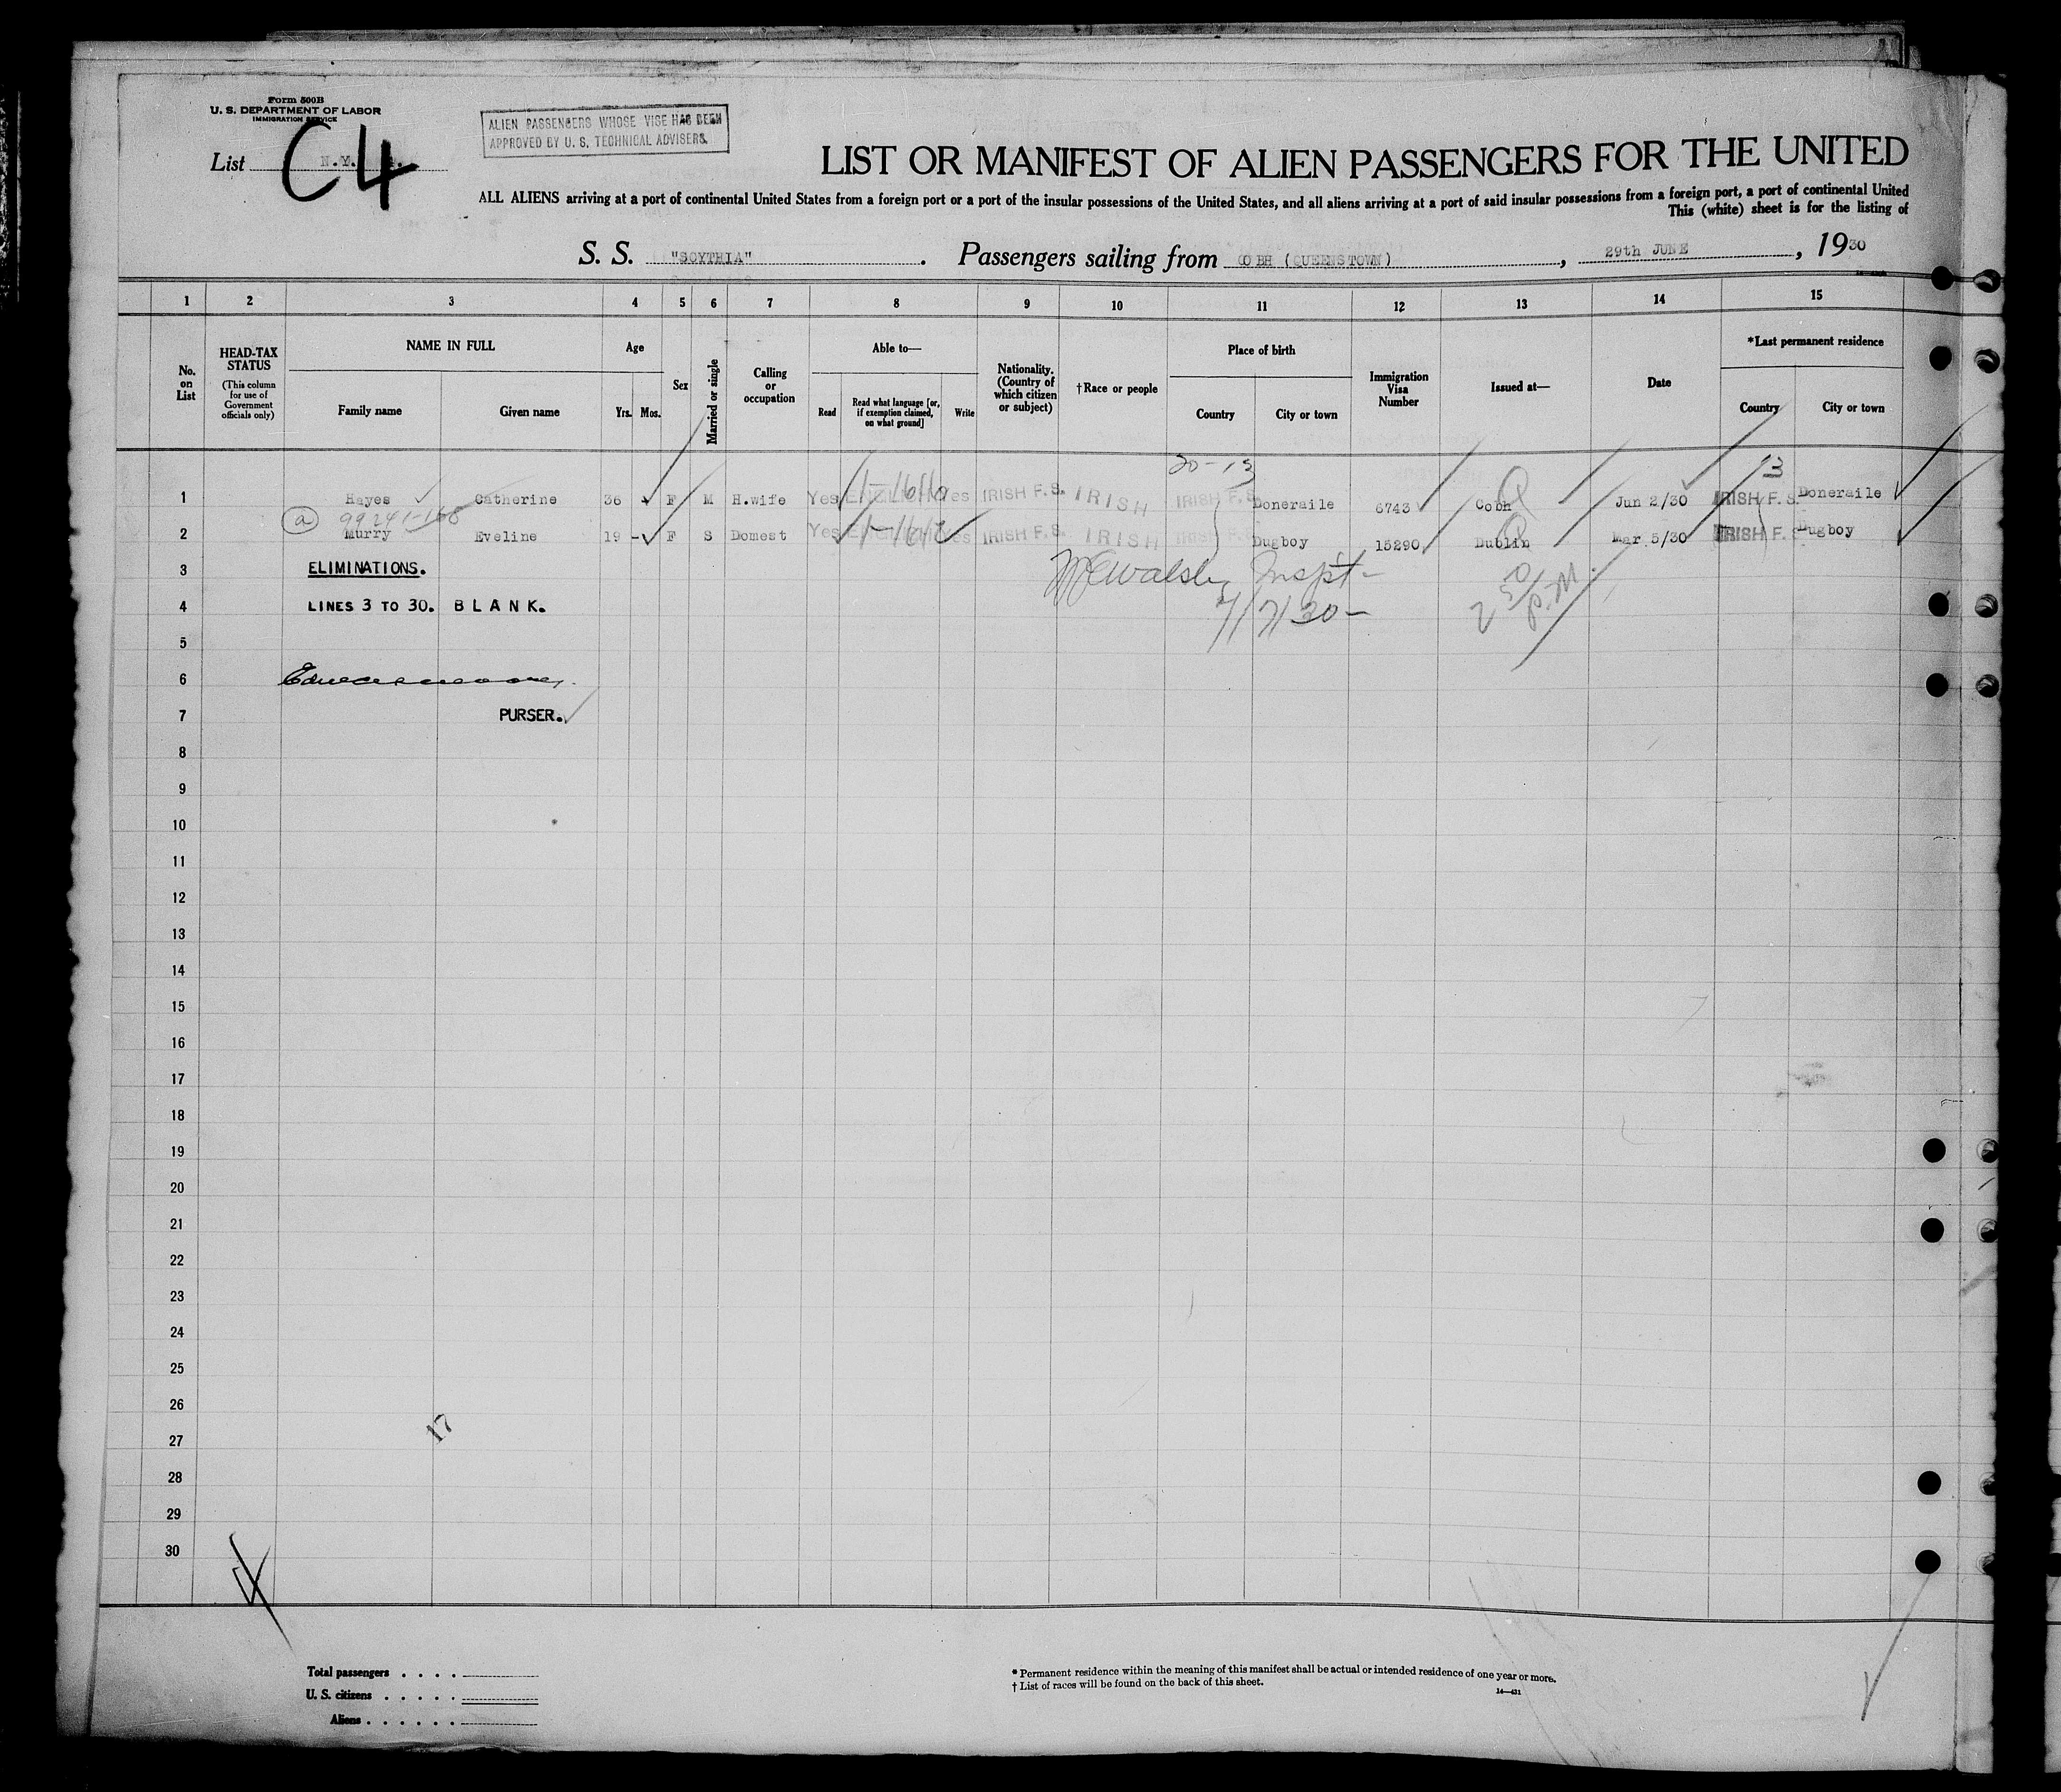 Form 500B
U. S. DEPARTMENT OF LABOR
IMMIGRATION SERVICE
List N.Y.
C4
ALIEN PASSENGERS WHOSE VISE HAS BEEN
APPROVED BY U. S. TECHNICAL ADVISERS.
LIST OR MANIFEST OF ALIEN PASSENGERS FOR THE UNITED
ALL ALIENS arriving at a port of continental United States from a foreign port or a port of the insular possessions of the United States, and all aliens arriving at a port of said insular possessions from a foreign port, a port of continental United
This (white) sheet is for the listing of
S. S. "SCYTHIA" . Passengers sailing from COBH (QUEENSTOWN) , 29th JUNE , 1930
1 2 3 4 5 6 7 8 9 10 11 12 13 14 15
No. on List
HEAD-TAX STATUS
(This column for use of Government officials only)
NAME IN FULL
Family name Given name
Age
Yrs. Mos.
Sex
Married or single
Calling or occupation
Able to—
Read
Read what language [or, if exemption claimed, on what ground]
Write
Nationality. (Country of which citizen or subject)
†Race or people
Place of birth
Country City or town
Immigration Visa Number
Issued at—
Date
*Last permanent residence
Country City or town
20-13 13
1 Hayes Catherine 36 F M H.wife Yes ENGLISH Yes IRISH F.S. IRISH IRISH F.S. Doneraile 6743 Cobh Jun 2/30 IRISH F.S. Doneraile
a 99241-168
2 Murry Eveline 19 - F S Domest Yes ENGLISH Yes IRISH F.S. IRISH IRISH F.S. Dugboy 15290 Dublin Mar 5/30 IRISH F.S. Dugboy
3 ELIMINATIONS. Walsh Inspt-
4 LINES 3 TO 30. BLANK. 7/7/30- 2 50 P.M.
5
6
7 PURSER.
8
9
10
11
12
13
14
15
16
17
18
19
20
21
22
23
24
25
26
17
27
28
29
30
Total passengers . . . .
U. S. citizens . . . . .
Aliens . . . . . .
* Permanent residence within the meaning of this manifest shall be actual or intended residence of one year or more.
† List of races will be found on the back of this sheet.
14—431